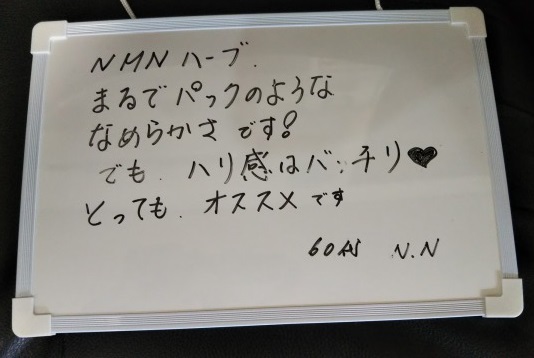 NMNハーブ.
まるでパックのような
なめらかさです!
でも. ハリ感はバッチリ♥
とっても. オススメです
60代 N.N